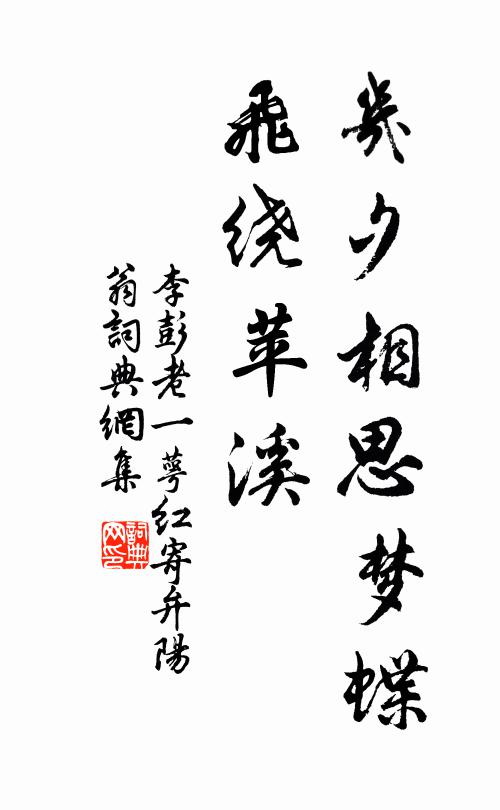 幾夕相思梦蝶
飛绕苹溪
李彭老一萼红寄弁陽
翁詞典網集
詞典
网印